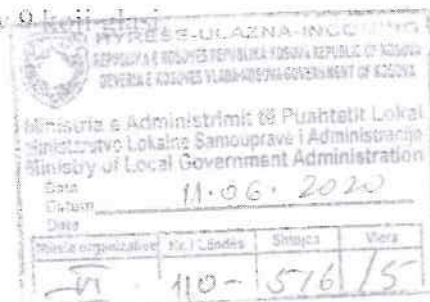 HYRESE-ULAZNA-INCOMING
REPUBLIKA E KOSOVËS REPUBLIKA KOSOVA REPUBLIC OF KOSOVA
QEVERIA E KOSOVËS VLADA KOSOVA GOVERNMENT OF KOSOVA
Ministria e Administrimit të Pushtetit Lokal
Ministarstvo Lokalne Samouprave i Administracije
Ministry of Local Government Administration
Data
Datum 11.06.2020
Date
Njësia organizative Nr. i Lëndës Shtojca Vlera
VI 110- 576 /5